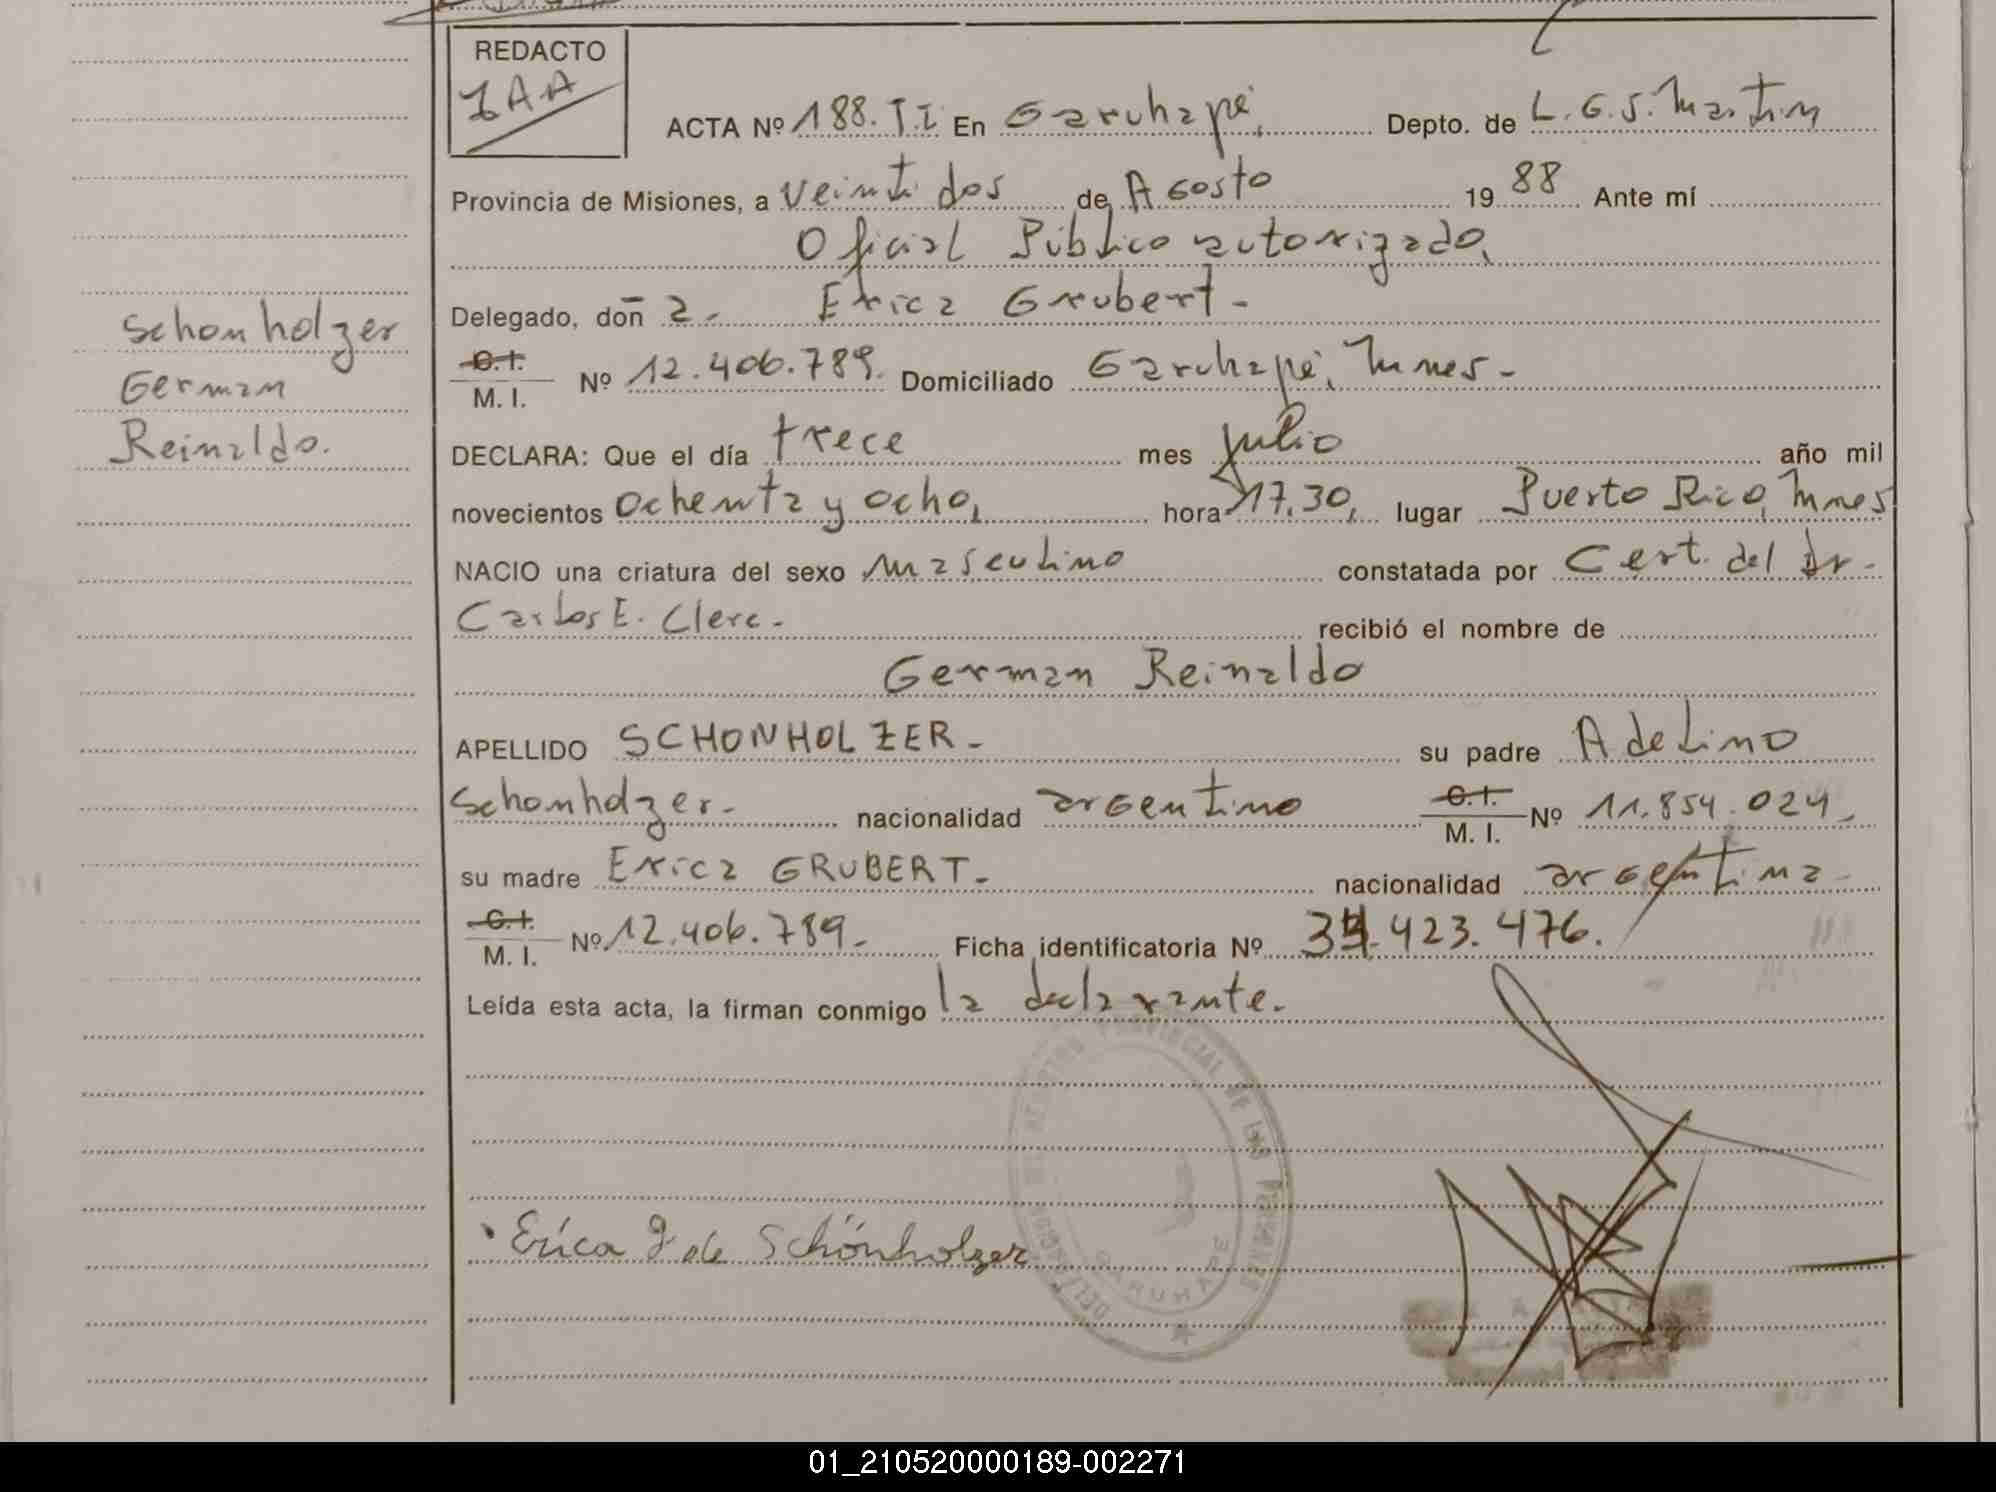 REDACTO
ACTA Nº 188. T.I. En Garuhapé, Depto. de L.G.S. Martin
Provincia de Misiones, a veinti dos de Agosto 1988 Ante mí
Oficial Público autorizado,
Delegado, don a. Erica Grubert.-
C.I.
M. I. Nº 12.406.789. Domiciliado Garuhapé, Mnes.-
DECLARA: Que el día trece mes julio año mil
novecientos ochenta y ocho, hora 17,30, lugar Puerto Rico, Mnes
NACIO una criatura del sexo masculino constatada por Cert. del Dr.
Carlos E. Clerc.- recibió el nombre de
German Reinaldo
APELLIDO SCHONHOLZER.- su padre Adelino
Schonholzer.- nacionalidad argentino C.I. M. I. Nº 11.854.024.
su madre Erica GRUBERT.- nacionalidad argentina.-
C.I.
M. I. Nº 12.406.789.- Ficha identificatoria Nº 34.423.476.
Leída esta acta, la firman conmigo la declarante.-
Schonholzer
German
Reinaldo.
Erica G de Schönholzer
GARUHAPE
01_210520000189-002271